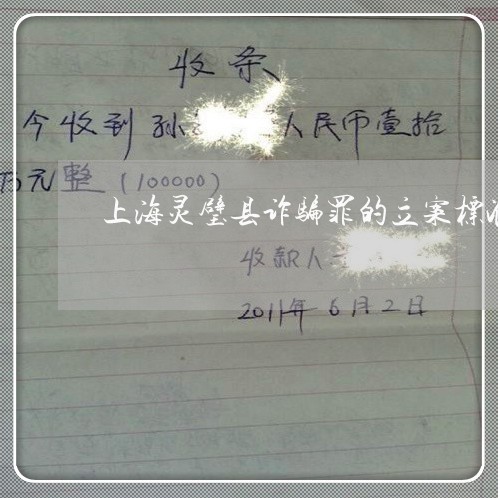 收条
今收到孙 人民币壹拾
万元整(100000)
上海灵璧县诈骗罪的立案标准
收款人
2011年6月2日